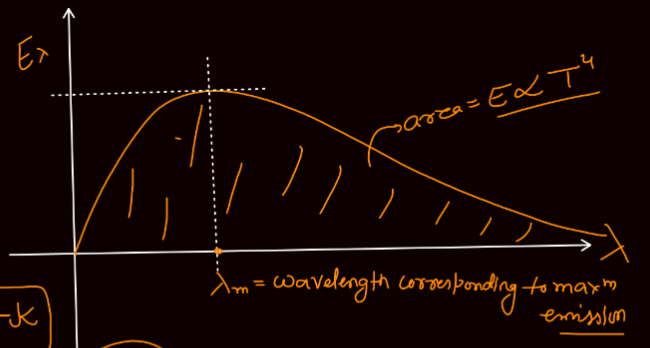 Eλ
area = E ∝ T⁴
λ
λm = wavelength corresponding to maxm
emission
-K